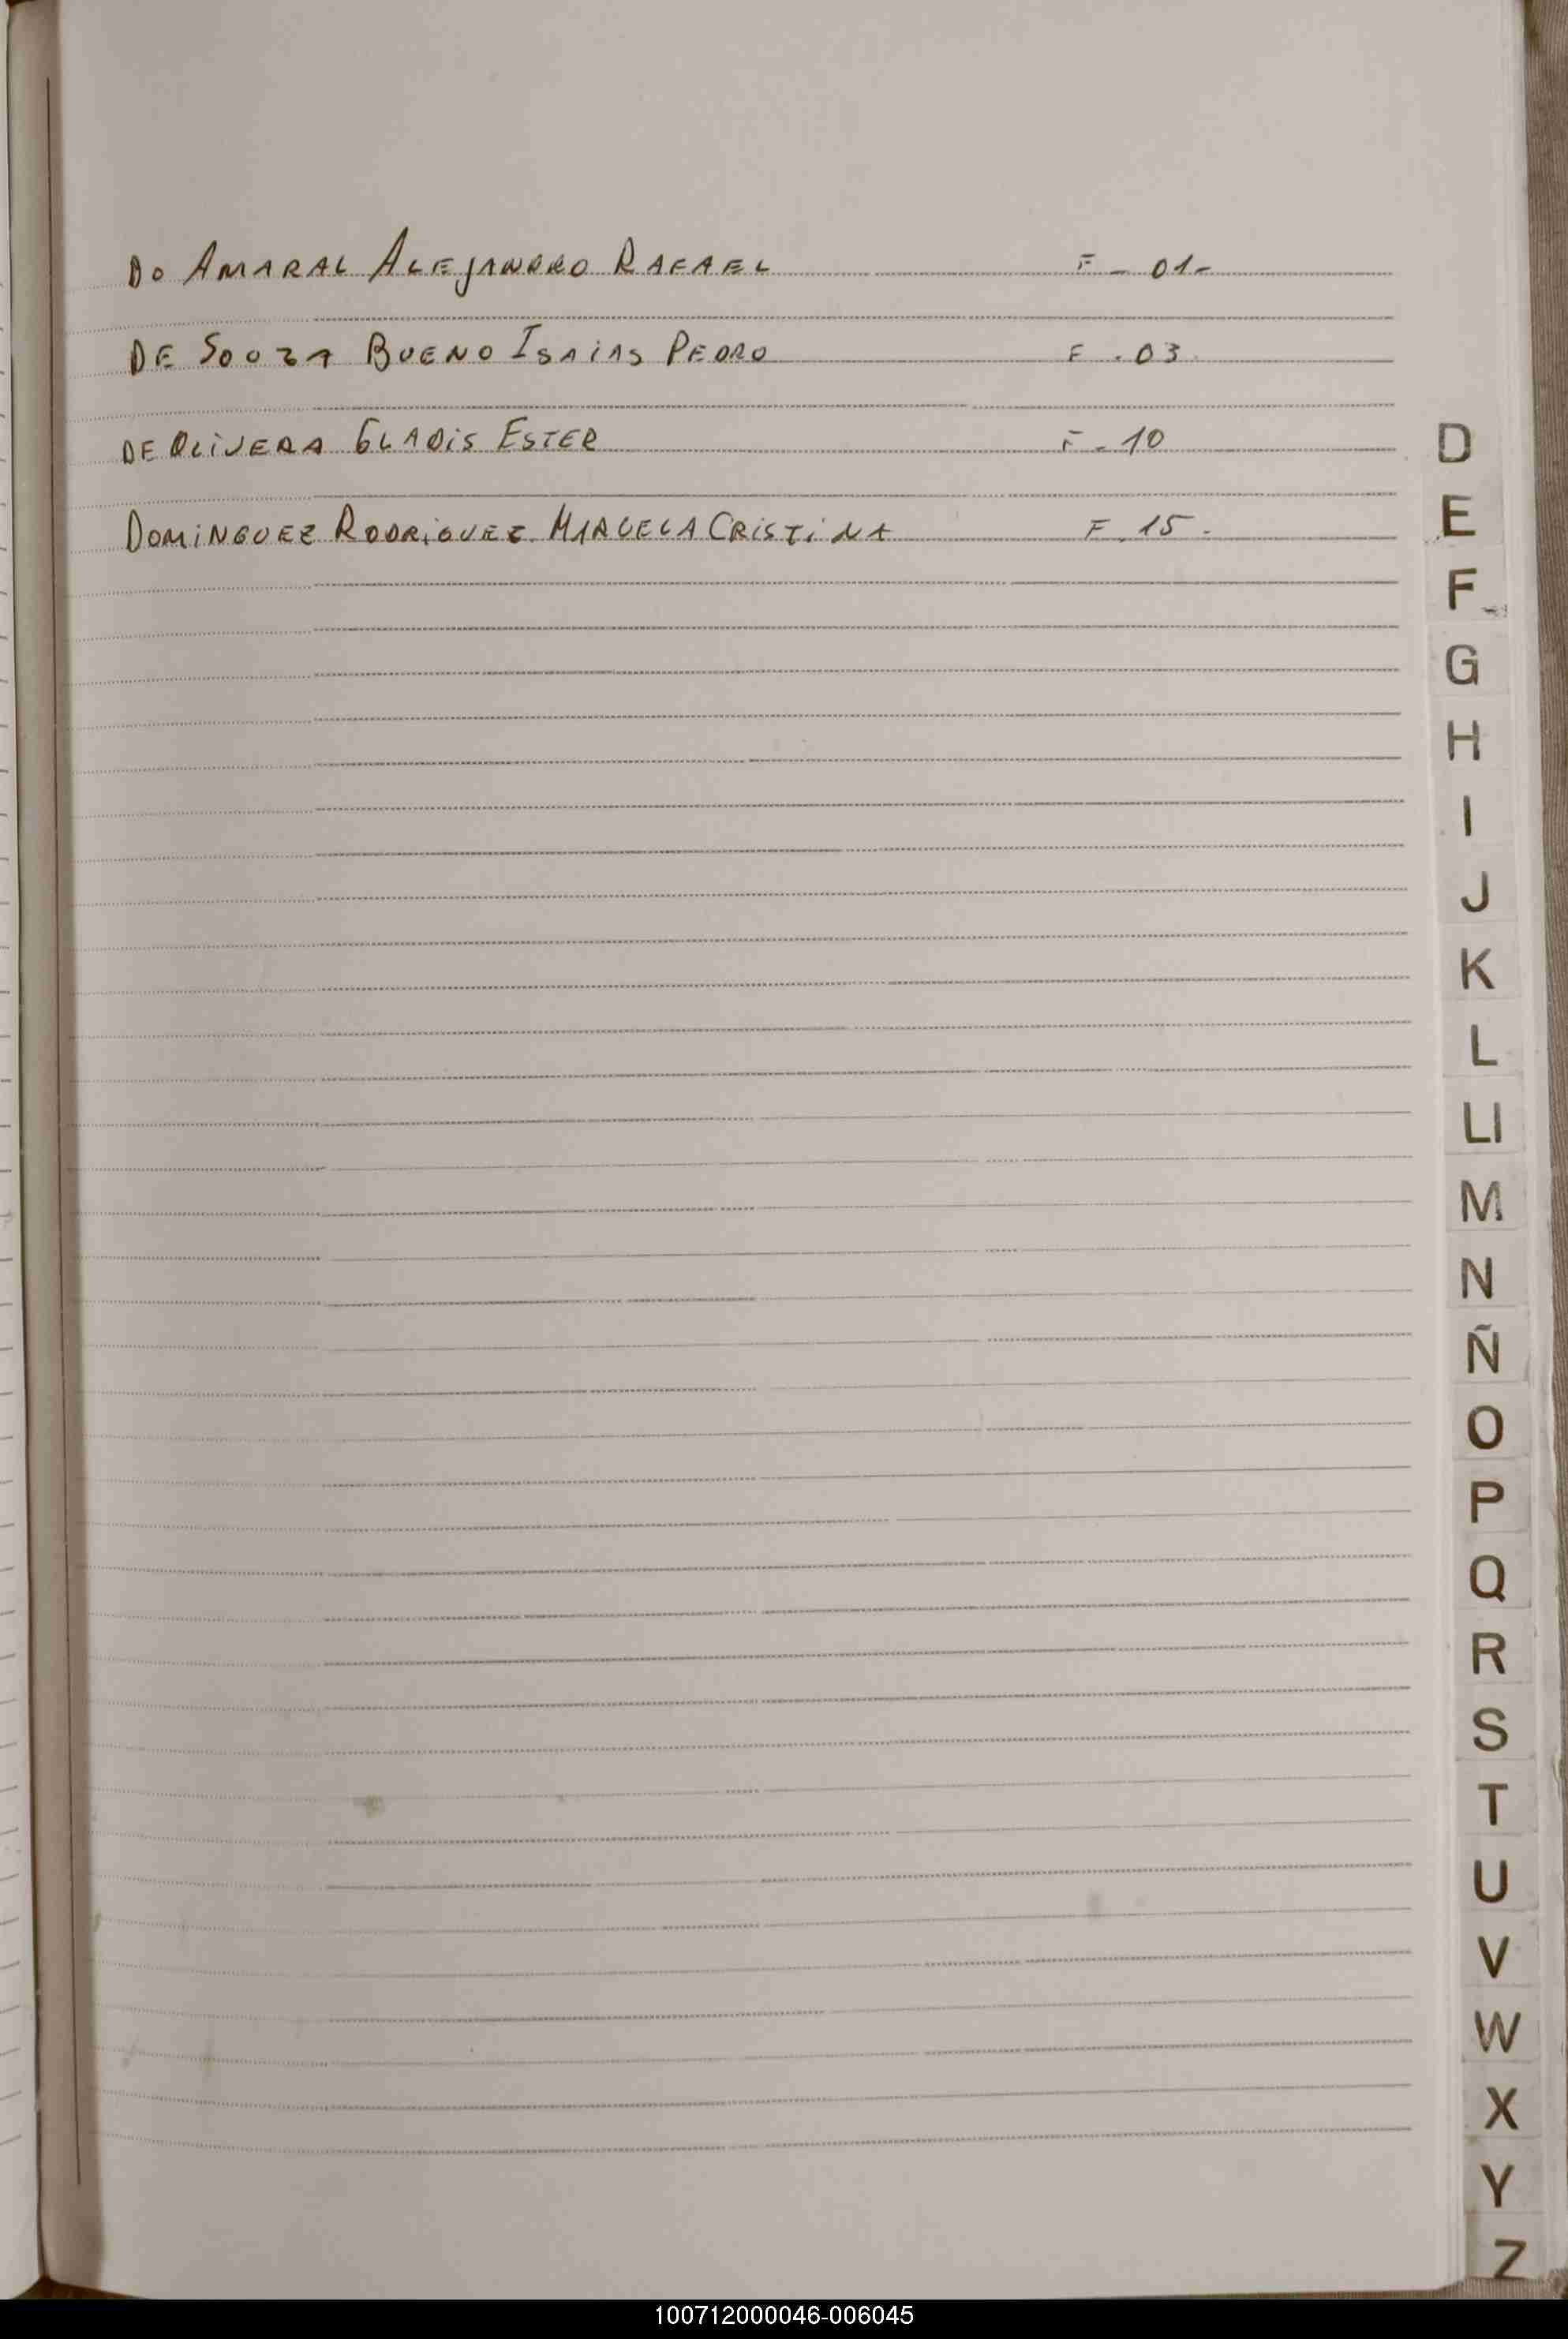 DO AMARAL ALEJANDRO RAFAEL F - 01-
DE SOOZA BUENO ISAIAS PEDRO F - 03.
DE OLIVERA GLADIS ESTER F - 10
DOMINGUEZ RODRIGUEZ MARCELA CRISTINA F. 15 -
D
E
F
G
H
I
J
K
L
Ll
M
N
Ñ
O
P
Q
R
S
T
U
V
W
X
Y
Z
100712000046-006045